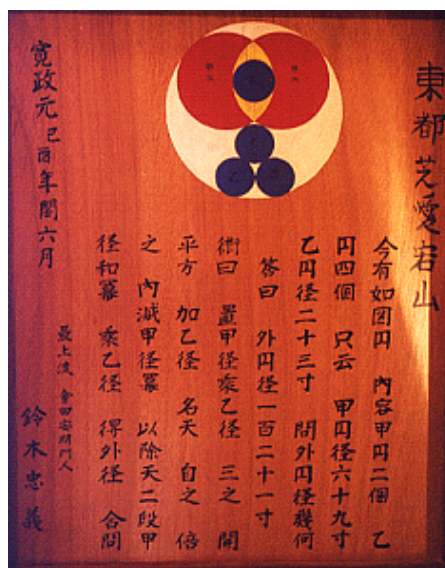 東都芝愛宕山
今有如図円 内容甲円二個 乙
円四個 只云 甲円径六十九寸
乙円径二十三寸 問外円径幾何
答曰 外円径一百二十一寸
術曰 置甲径乗乙径 三之 開
平方 加乙径 名天 自之 倍
之 内減甲径冪 以除天二段甲
径和冪 乗乙径 得外径 合問
最上流 會田安明門人
鈴木忠義
寛政元己酉年閏六月